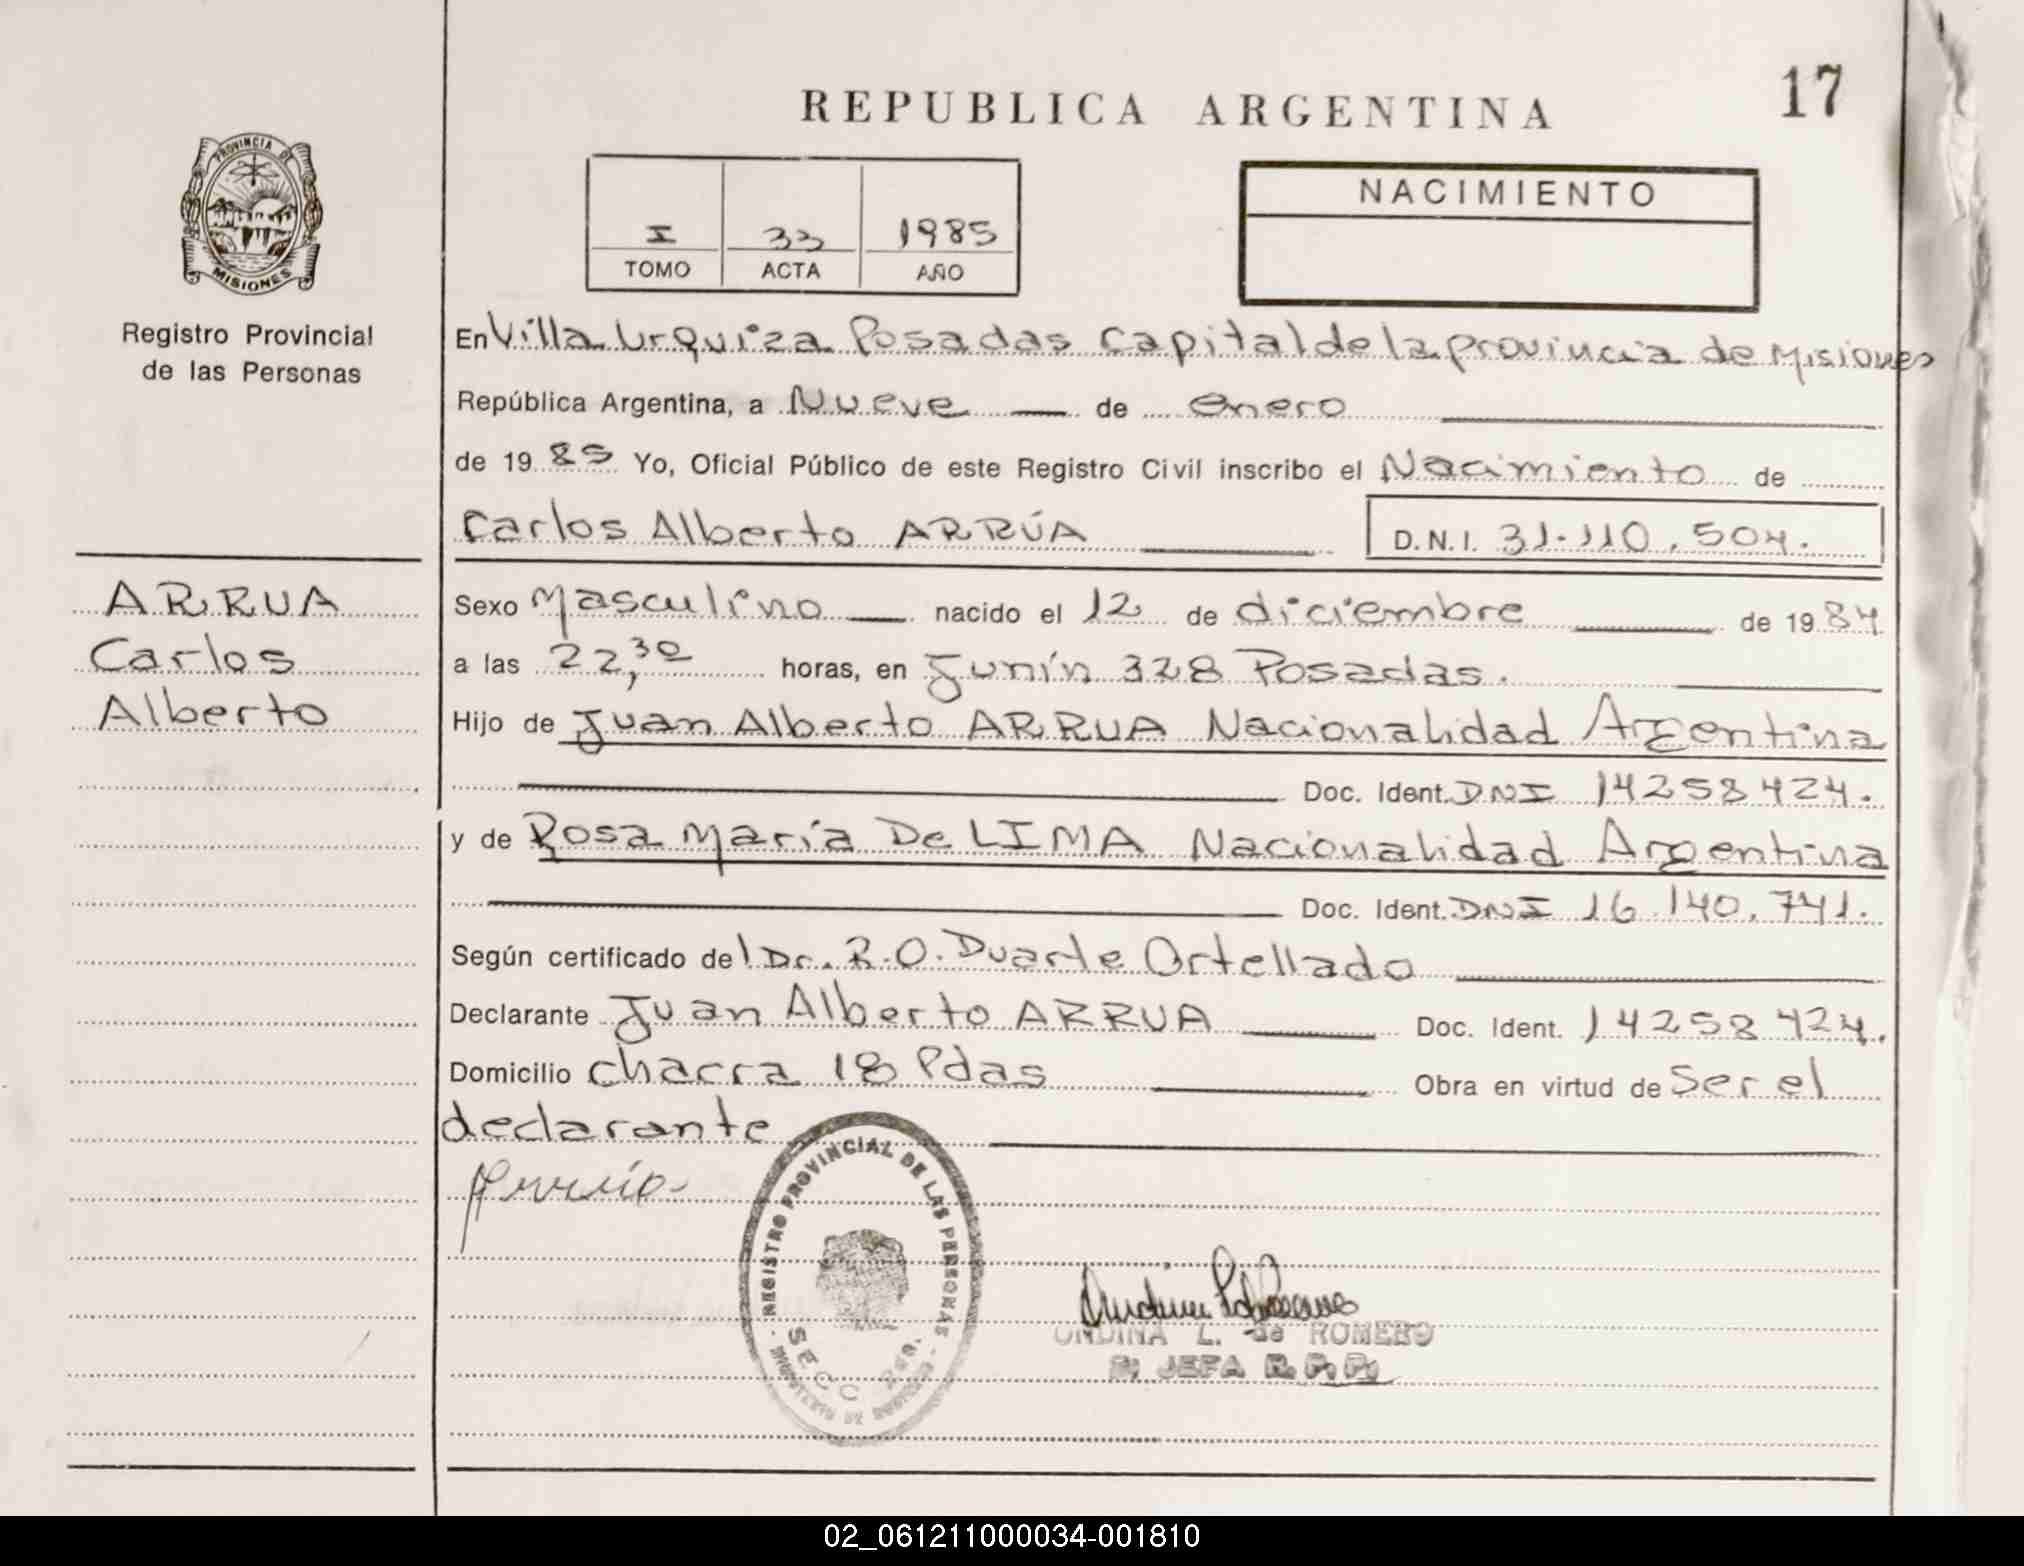 17
REPUBLICA ARGENTINA
PROVINCIA DE
MISIONES
Registro Provincial
de las Personas
I 33 1985
TOMO ACTA AÑO
NACIMIENTO
En Villa Urquiza Posadas Capital de la provincia de Misiones
República Argentina, a Nueve de enero
de 19 85 Yo, Oficial Público de este Registro Civil inscribo el Nacimiento de
Carlos Alberto ARRÚA D.N.I. 31.110.504.
ARRUA
Carlos
Alberto
Sexo Masculino nacido el 12 de diciembre de 19 84
a las 22,30 horas, en Junín 328 Posadas.
Hijo de Juan Alberto ARRUA Nacionalidad Argentina
Doc. Ident. DNI 14258424.
y de Rosa María De LIMA Nacionalidad Argentina
Doc. Ident. DNI 16.140.741.
Según certificado del Dr. R.O. Duarte Ortellado
Declarante Juan Alberto ARRUA Doc. Ident. 14258424.
Domicilio chacra 18 Pdas Obra en virtud de Ser el
declarante
REGISTRO PROVINCIAL DE LAS PERSONAS
SECC 2da.
ONDINA L. de ROMERO
JEFA R. P. P.
02_061211000034-001810